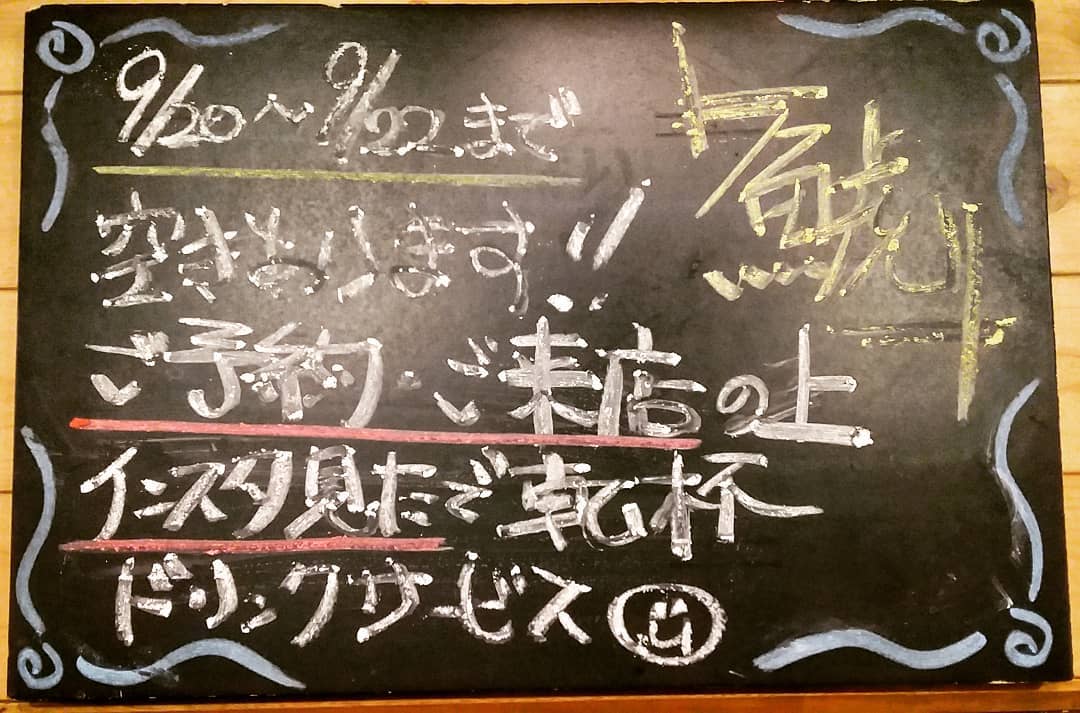 9/20〜9/22まで
空きあります!!
ご予約・ご来店の上
インスタ見たで乾杯
ドリンクサービス